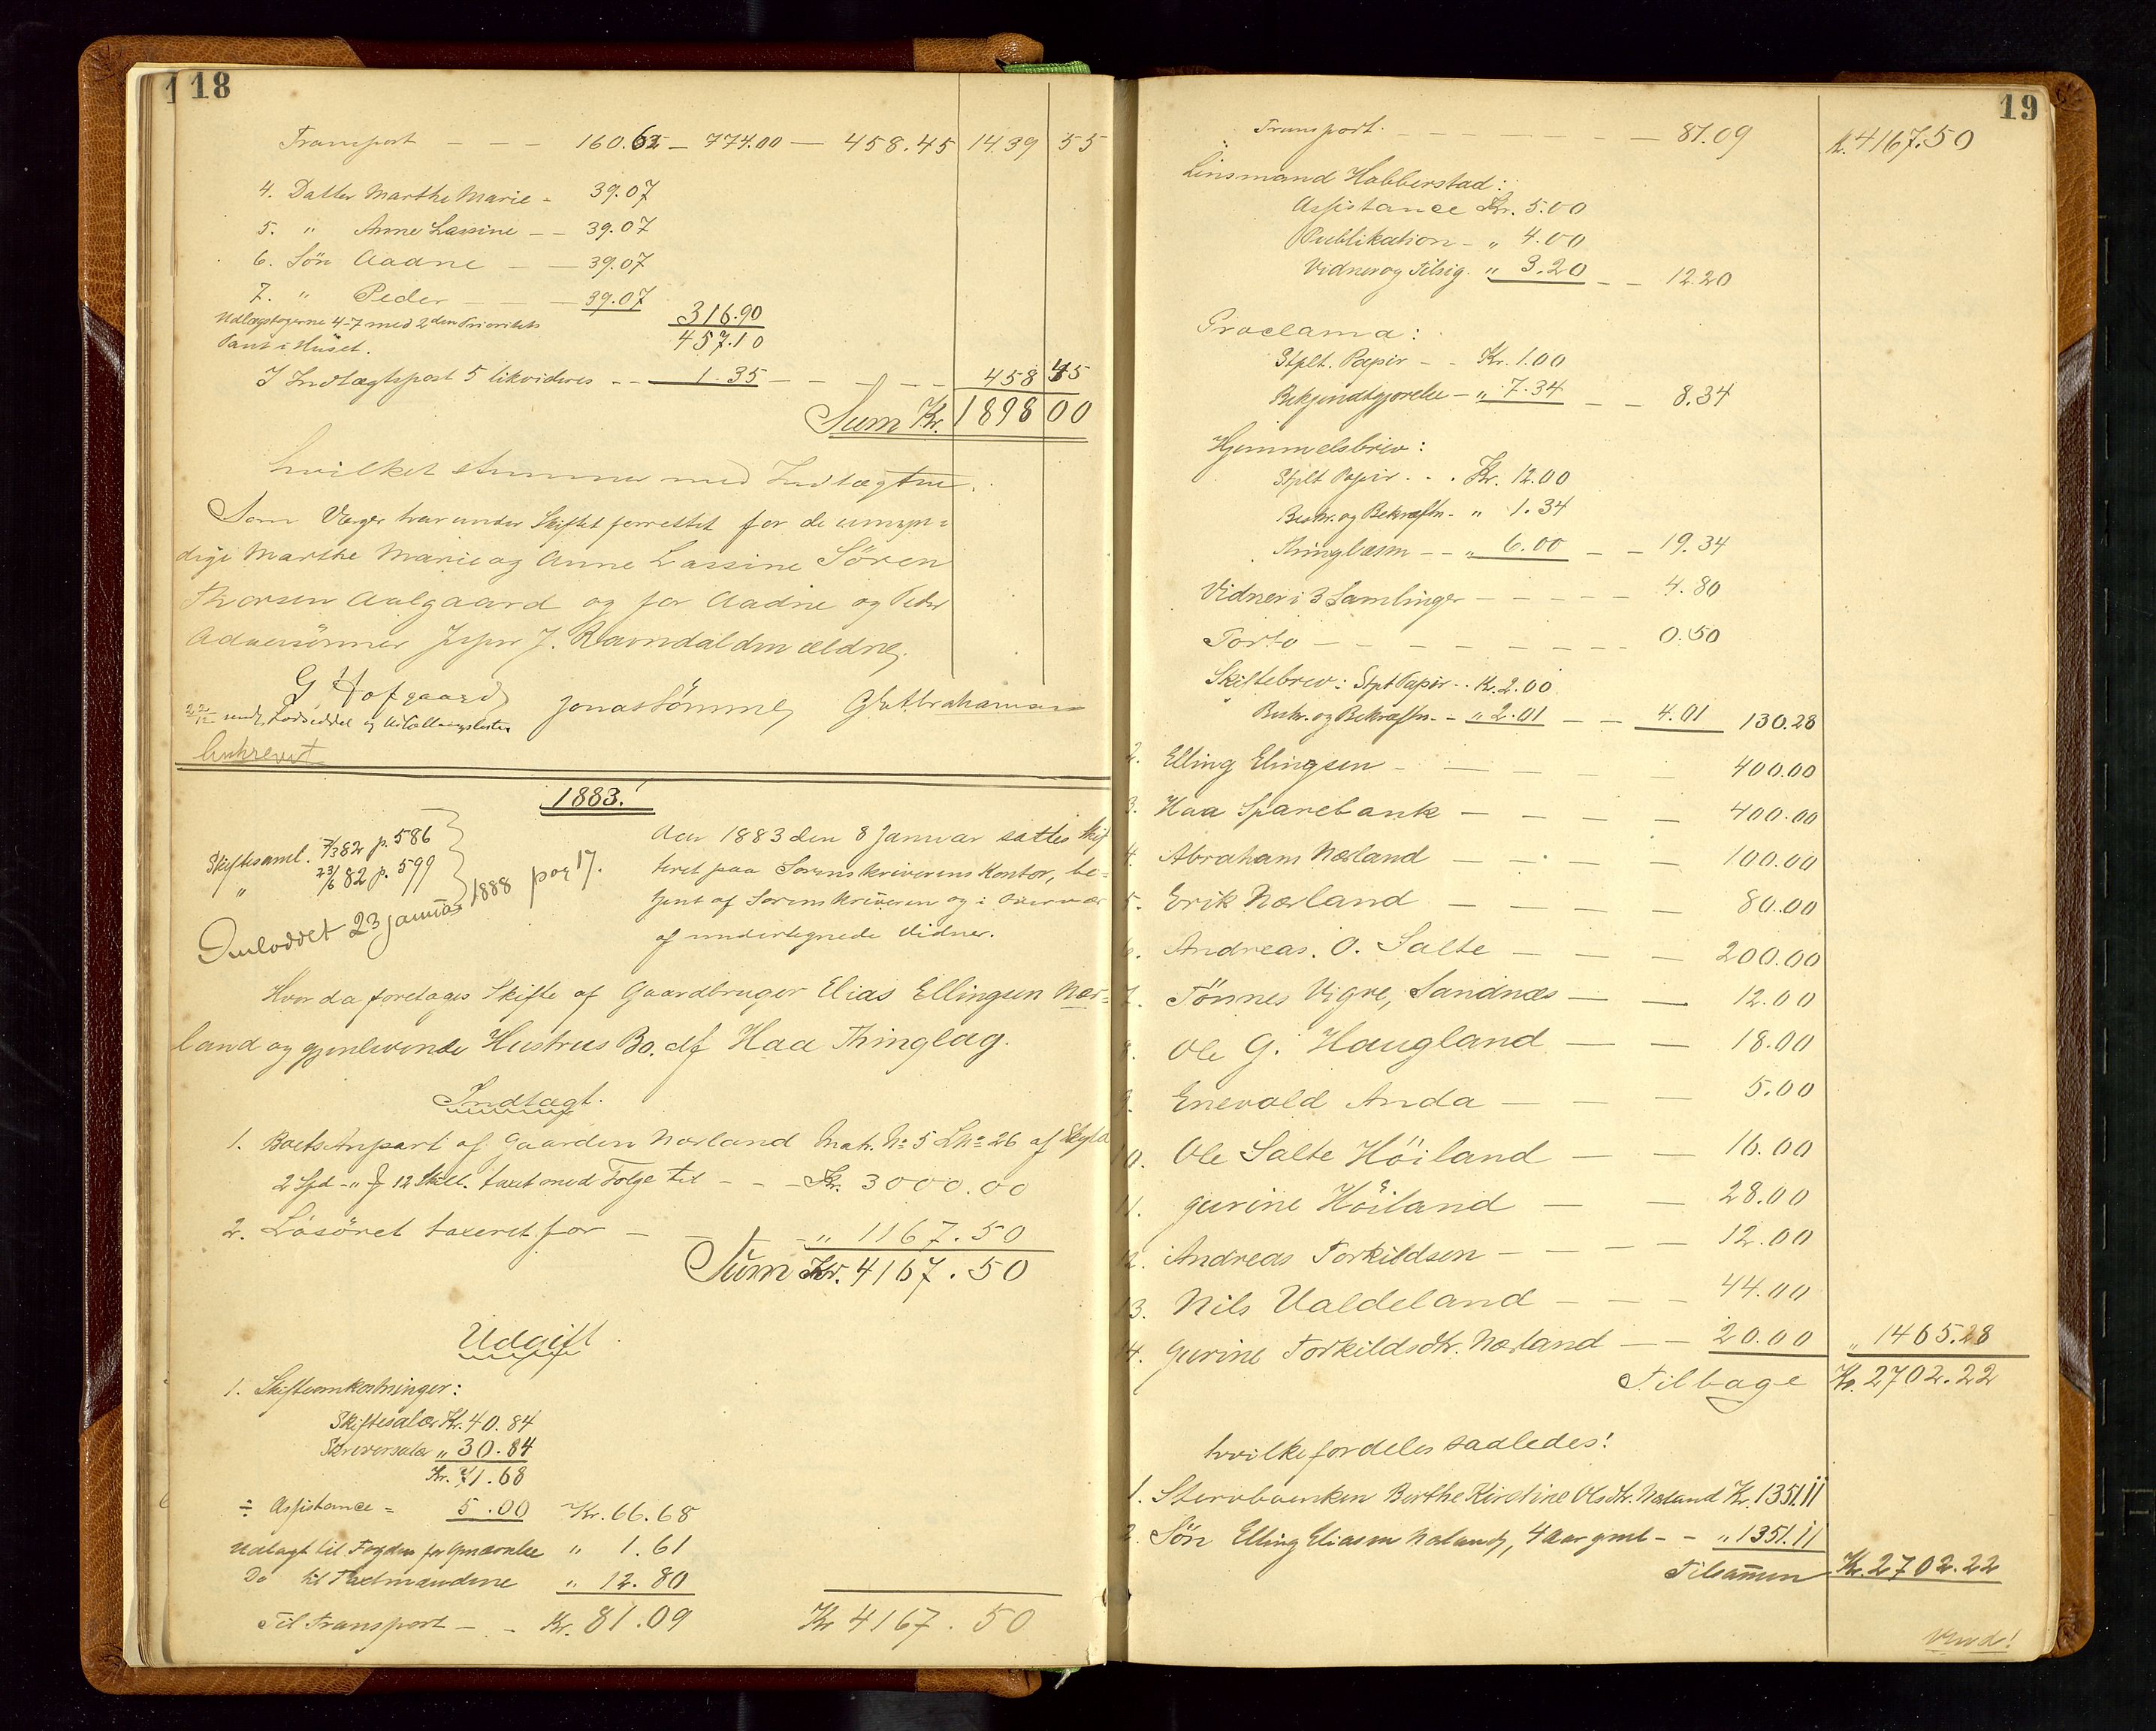 18
Transport - - - 160.62 - 774.00 - 458.45 1439 55
4. Datter Marthe Marie - 39.07
5. " Anne Lassine - - 39.07
6. Sön Aadne - - 39.07
7. " Peder - - - 39.07
316.90
Udlægstagerne 4-7 med 2den Prioritets
Pant i Huset. 457.10
I Indtægtspost 5 likvideres - - 1.35 - - - - 458 45
Sum Kr. 1898 00
hvilket stemmer med Indtægten.
Som Værger har under Skiftet forrettet for de umyn-
dige Marthe Marie og Anne Lassine Sören
Thorsen Aalgaard og for Aadne og Peder
Adnesönner Jesper J. Ravndal den ældre.
G Hofgaard Jonas Sömme G E Abrahamsen
22/12 sendt Lodseddel og Udlællingslister
beskrevet
1883.
Skiftesaml. 7/3 82 p. 586
" 23/6 82 p. 599
Omloddet 23 januar 1888 pag 17.
Aar 1883 den 8 Januar sattes Skif
teret paa Sorenskriverens Kontor, be-
tjent af Sorenskriveren og i Overvær
af undertegnede Vidner.
Hvor da foretages Skifte af Gaardbruger Elias Ellingsen Nær-
land og gjenlevende Hustrus Bo. af Haa Thinglag.
Indtægt.
1. Boets Anpart af Gaarden Nærland Matr. No 5 Lno 26 af Skyld
2 Spd - " 12 Skill. taxt med Følge til - - - Kr. 3000.00
2. Lösöret taxeret for - - - " 1167.50
Sum Kr. 4167.50
Udgift.
1. Skifteomkostninger:
Skiftesalær Kr. 40.84
Skriversalær " 30.84
Kr. 71.68
÷ Assistance - 5.00 Kr. 66.68
Udlagt til Fogden for Opnævnelse " 1.61
Do til Taxtmændene " 12.80
Til Transport - - Kr. 81.09 Kr 4167.50
19
Transport. - - - - - - - 81.09 Kr. 4167.50
Lensmand Habberstad:
Assistance Kr. 5.00
Publikation - " 4.00
Vidner og Tilsig. " 3.20 - - 12.20
Proclama:
Stplt. Papir - - Kr. 1.00
Bekjendtgjörelse - " 7.34 - - 8.34
Hjemmelsbrev:
Stplt Papir . . . Kr. 12.00
Beskr. og Bekræftn. " 1.34
Thinglæsn - - " 6.00 - - 19.34
Vidner i 3 Samlinger - - - - - 4.80
Porto - - - - - - - - 0.50
Skiftebrev: Stpt Papir . . Kr. 2.00
Beskr. og Bekræftn. - " 2.01 - - 4.01 130.28
2. Elling Elingsen - - - - - 400.00
3. Haa Sparebank - - - - 400.00
4. Abraham Nærland - - - - 100.00
5. Erik Nærland - - - - 80.00
6. Andreas. O. Salte - - - 200.00
7. Tönnes Vigre, Sandnæs - - 12.00
8. Ole G. Haugland - - 18.00
9. Enevald Anda - - - 5.00
10. Ole Salte Höiland - - 16.00
11. Gurine Höiland - - 28.00
12. Andreas Torkildsen - - - - 12.00
13. Nils Ualdeland - - - 44.00
14. Gurine Torkildsdtr. Nærland - - 20.00 " 1465.28
Tilbage Kr. 2702.22
hvilke fordeles saaledes:
1. Stervboenken Berthe Kirstine Olsdtr. Nærland Kr. 1351.11
2. Sön Elling Eliassen Nærland, 4 Aar gml - - " 1351.11
Tilsammen Kr. 2702.22
Vend!